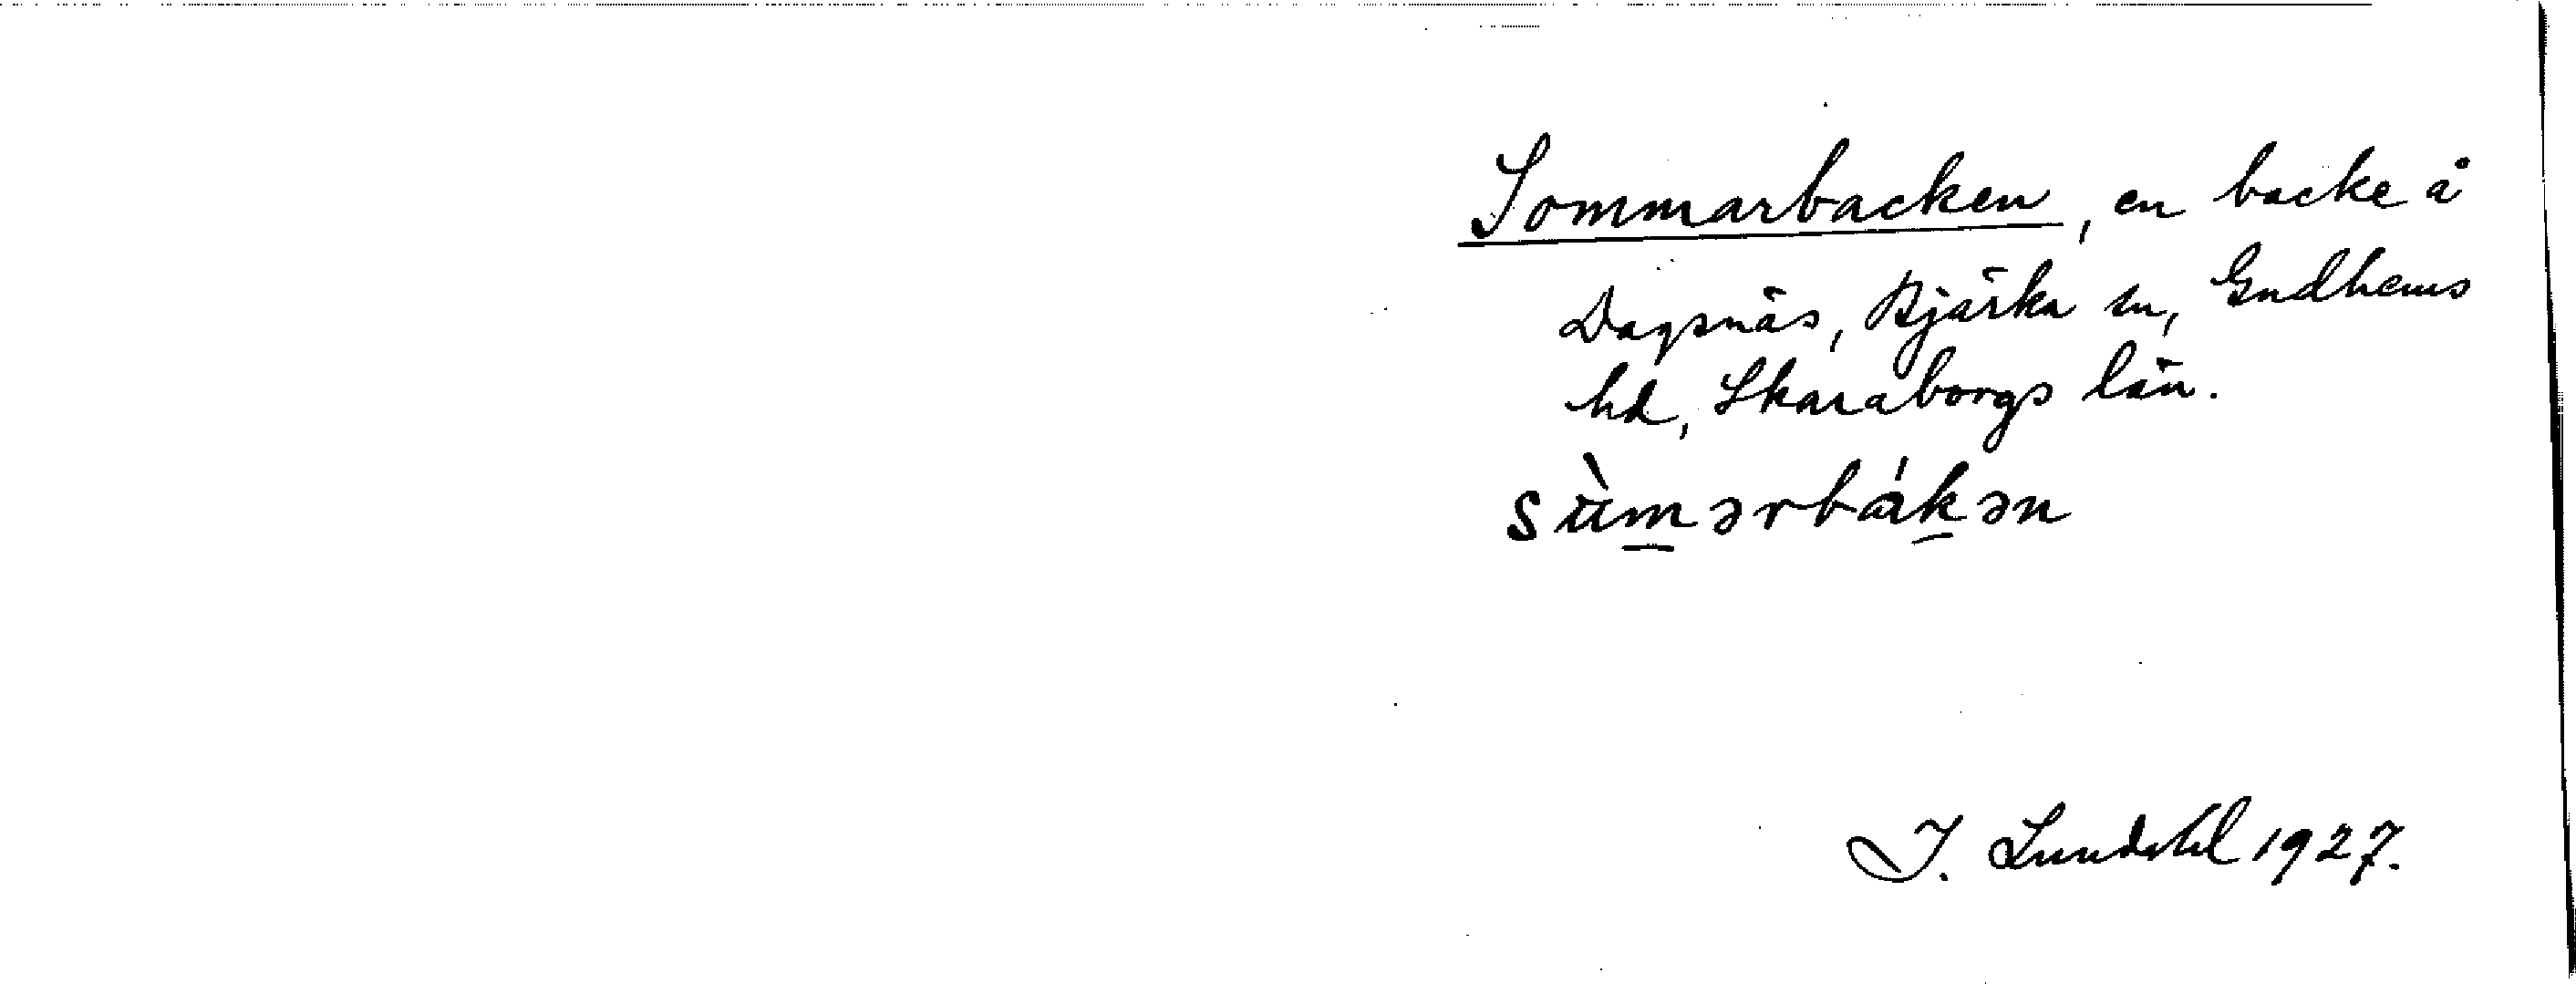 Sommarbacken, en backe å
Dagsnäs, Bjärka sn, Gudhems
hd, Skaraborgs län.
sùmərbákən
I. Lundahl 1927.